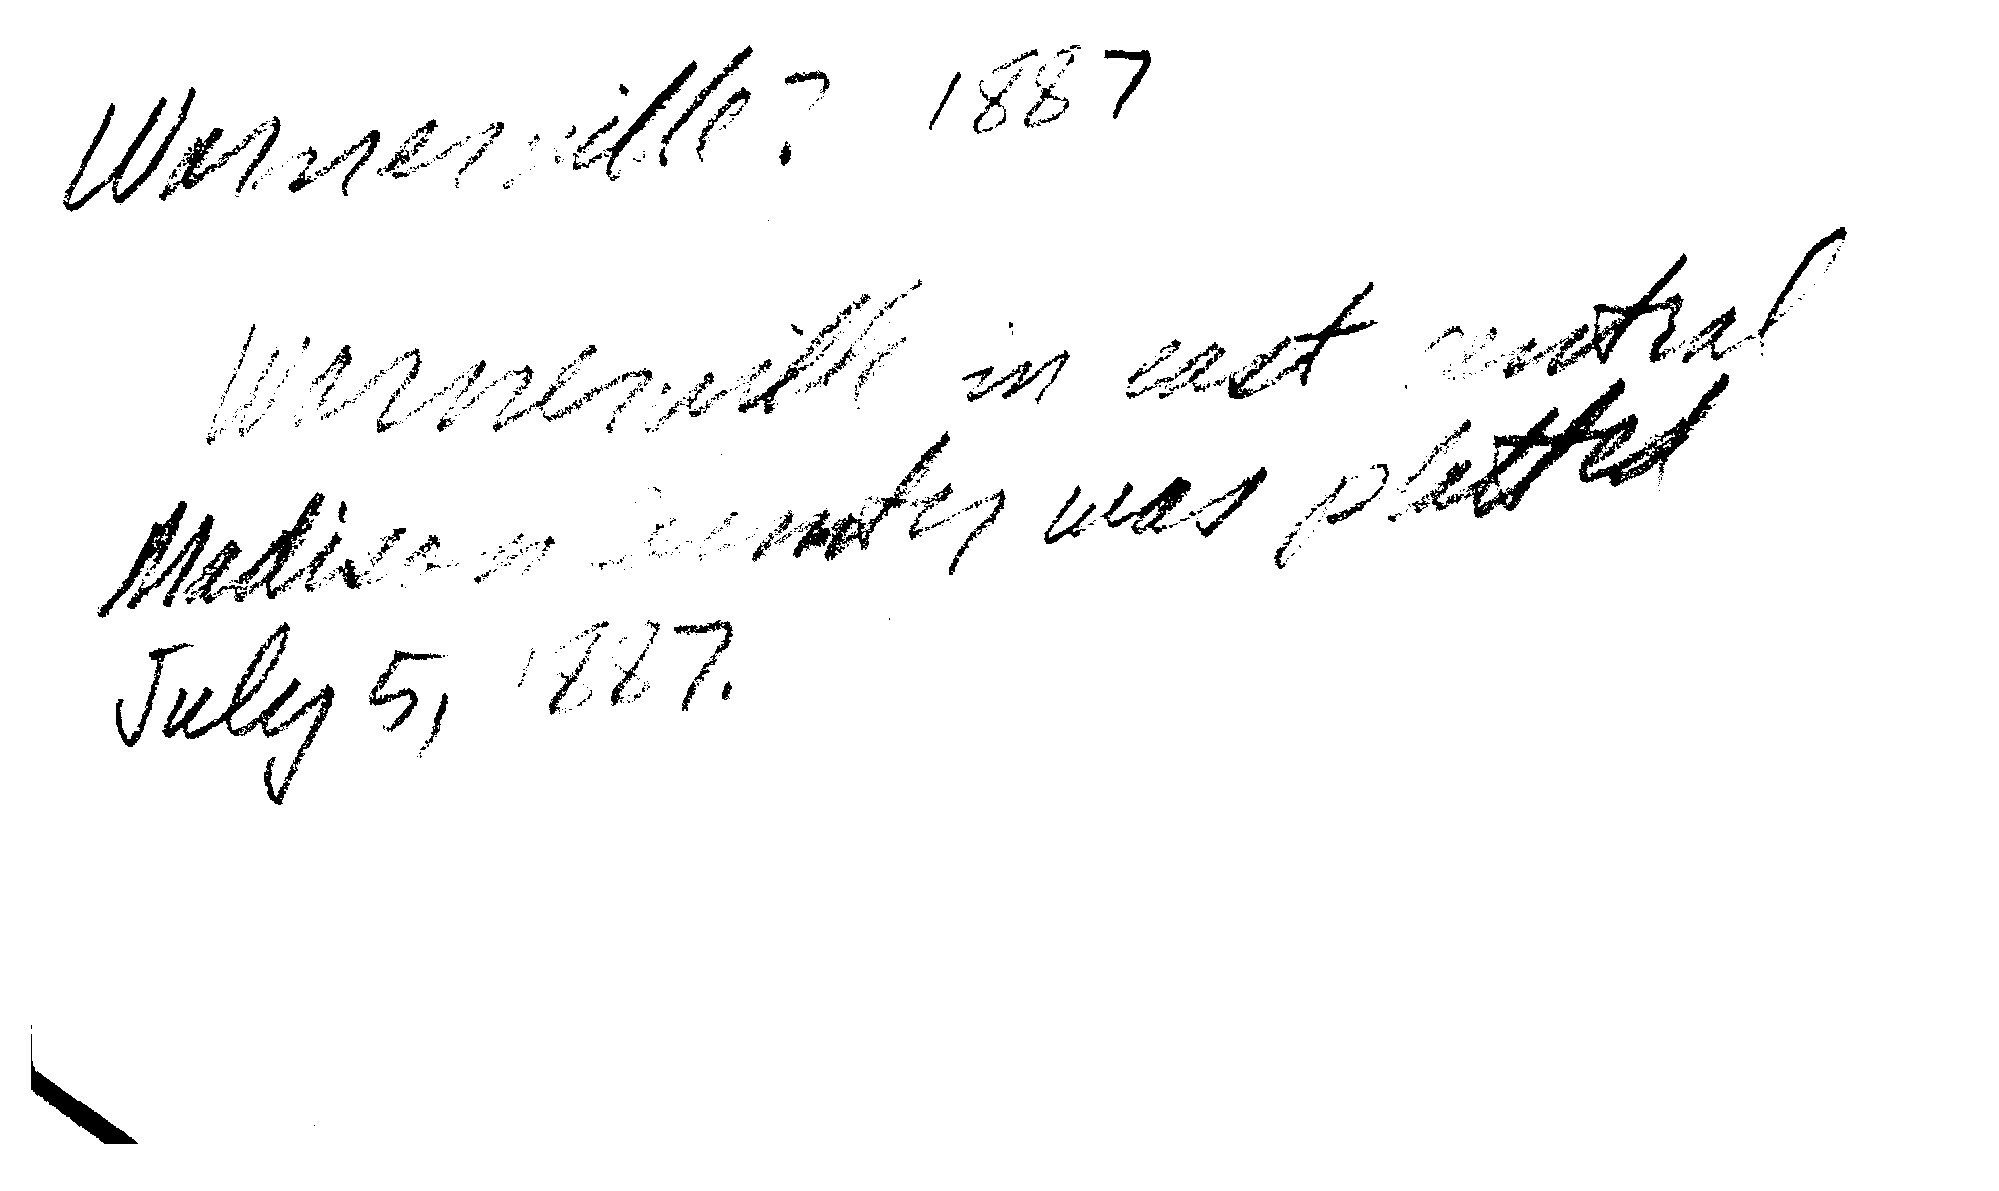 Warnerville? 1887
Warnerville in east central
Madison County was platted
July 5, 1887.